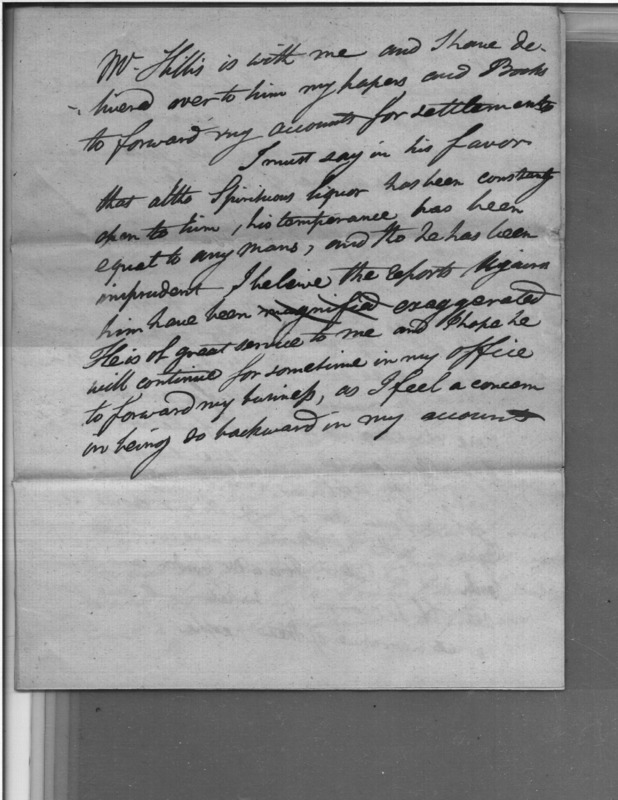 Mr. Hillis is with me and I have de-
livered over to him my papers and Books
to forward my accounts for settlements
I must say in his favor
that altho Spirituous liquor has been constantly
open to him, his temperance has been
equal to any mans, and tho he has been
imprudent I beleive the reports against
him have been magnified exaggerated
He is of great service to me and I hope he
will continue for sometime in my office
to forward my business, as I feel a concern
in being so backward in my accounts